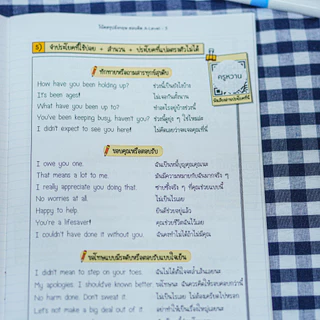 5) จำประโยคที่ใช้บ่อย + สำนวน + ประโยคที่แปลตรงตัวไม่ได้
ครูหวาน
ทักทายหรือถามสารทุกข์สุกดิบ
How have you been holding up? ช่วงนี้เป็นยังไงบ้าง
It's been ages! ไม่เจอกันตั้งนาน
What have you been up to? ทำอะไรอยู่บ้างช่วงนี้
You've been keeping busy, haven't you? ช่วงนี้ยุ่ง ๆ ใช่ไหมล่ะ
I didn't expect to see you here! ไม่คิดเลยว่าจะเจอคุณที่นี่
ขอบคุณหรือตอบรับ
I owe you one. ฉันเป็นหนี้บุญคุณคุณนะ
That means a lot to me. มันมีความหมายกับฉันมากจริง ๆ
I really appreciate you doing that. ซาบซึ้งจริง ๆ ที่คุณช่วยแบบนี้
No worries at all. ไม่เป็นไรเลย
Happy to help. ยินดีช่วยอยู่แล้ว
You're a lifesaver! คุณช่วยชีวิตฉันไว้เลย
I couldn't have done it without you. ฉันคงทำไม่ได้ถ้าไม่มีคุณ
ขอโทษแบบมีระดับหรือตอบรับแบบใจเย็น
I didn't mean to step on your toes. ฉันไม่ได้ตั้งใจ
My apologies. I should've known better. ขอโทษนะ ฉันควรจะคิดให้รอบคอบกว่านี้
No harm done. Don't sweat it. ไม่เป็นไรเลย
Let's not make a big deal out of it. อย่าทำให้เป็นเรื่องใหญ่เลยนะ